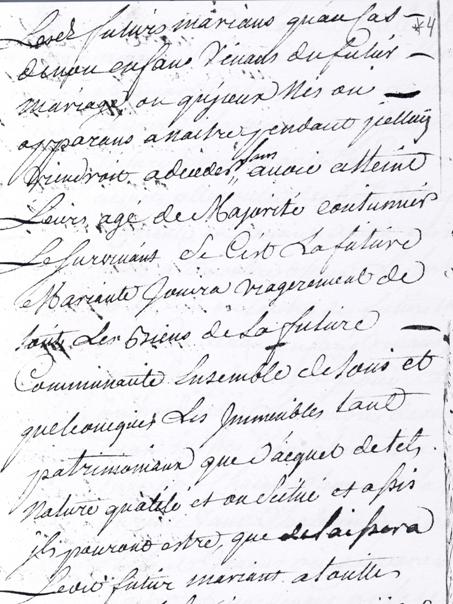 *4
Lesd. futurs marians quau cas
denon enfans venans du futur
mariage ou quyceux nes ou
apparans a naitre pendant jcelluy
viendront a deceder sans avoir atteint
Leurs age de Majorité coutumier
Le Survivant Si C'est La future
Mariante Jouira viagerement de
tout Les Biens de La future
Communauté Ensemble de tous et
quelconques Les Jmmeubles tant
patrimoniaux que d'acquet de tels
Nature qualité et ou Scitué et assis
jls pouront estre, que delaissera
Ledit futur mariant a touttes